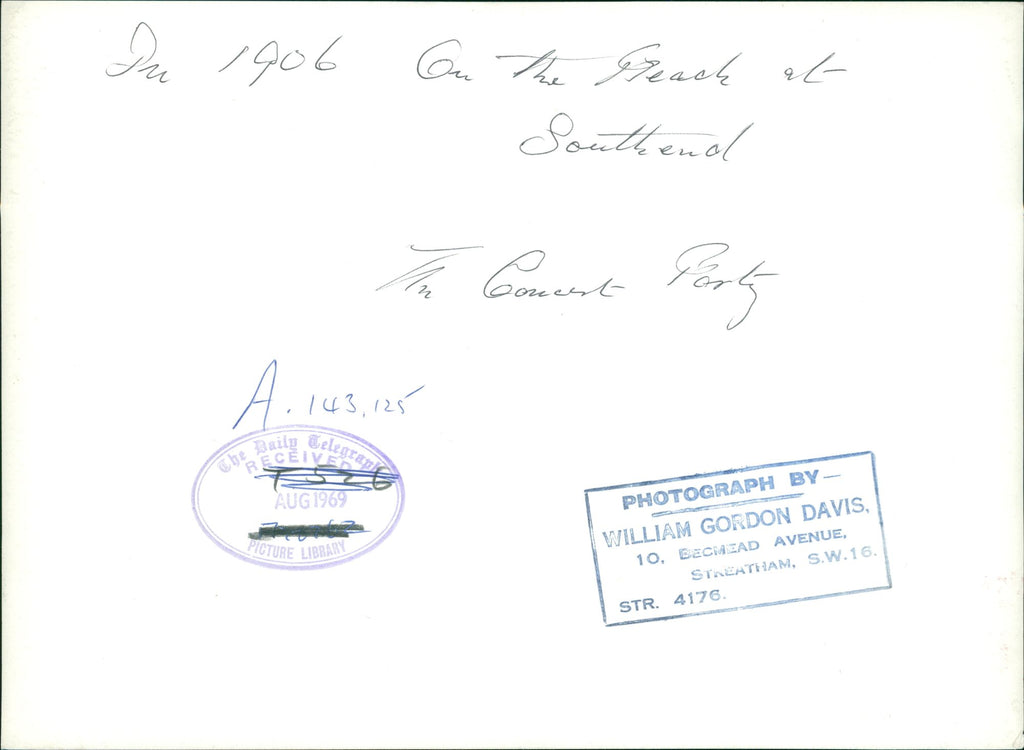 In 1906 On the Beach at
Southend
The Concert Party
A. 143,125
The Daily Telegraph
RECEIVED
T526
AUG 1969
PICTURE LIBRARY
PHOTOGRAPH BY —
WILLIAM GORDON DAVIS,
10, BECMEAD AVENUE,
STREATHAM, S.W.16.
STR. 4176.